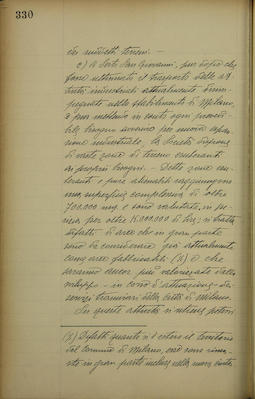 330
dei suddetti terreni. —
c) A Sesto San Giovanni, pur dopo che
fosse ultimato il trasporto delle at
tività industriali attualmente
impegnate nello stabilimento di Milano,
e pur mettendo in conto ogni
bile bisogno anche per nuova espan
sione industriale, la Società dispone
di vaste zone di terreno esuberanti
ai propri bisogni. — Dette zone
e pure alienabili raggiungono
una superficie complessiva di oltre
700.000 mq. e sono valutate, in pe
rizia per oltre 15.000.000 di lire; si tratta
difatti di aree che in gran parte
sono da considerarsi già attualmente
come aree fabbricabili (x) e che
saranno ancor più valorizzate dallo
sviluppo — in corso di attuazione — dei
servizi tramviari della città di Milano.
In queste attività si ritiene
(x) Difatti quanto all'intero il territorio
del Comune di Milano, così sono
in gran parte incluse nella nuova